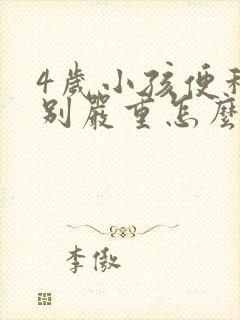 4歲小孩便
別嚴重怎麼
李傲